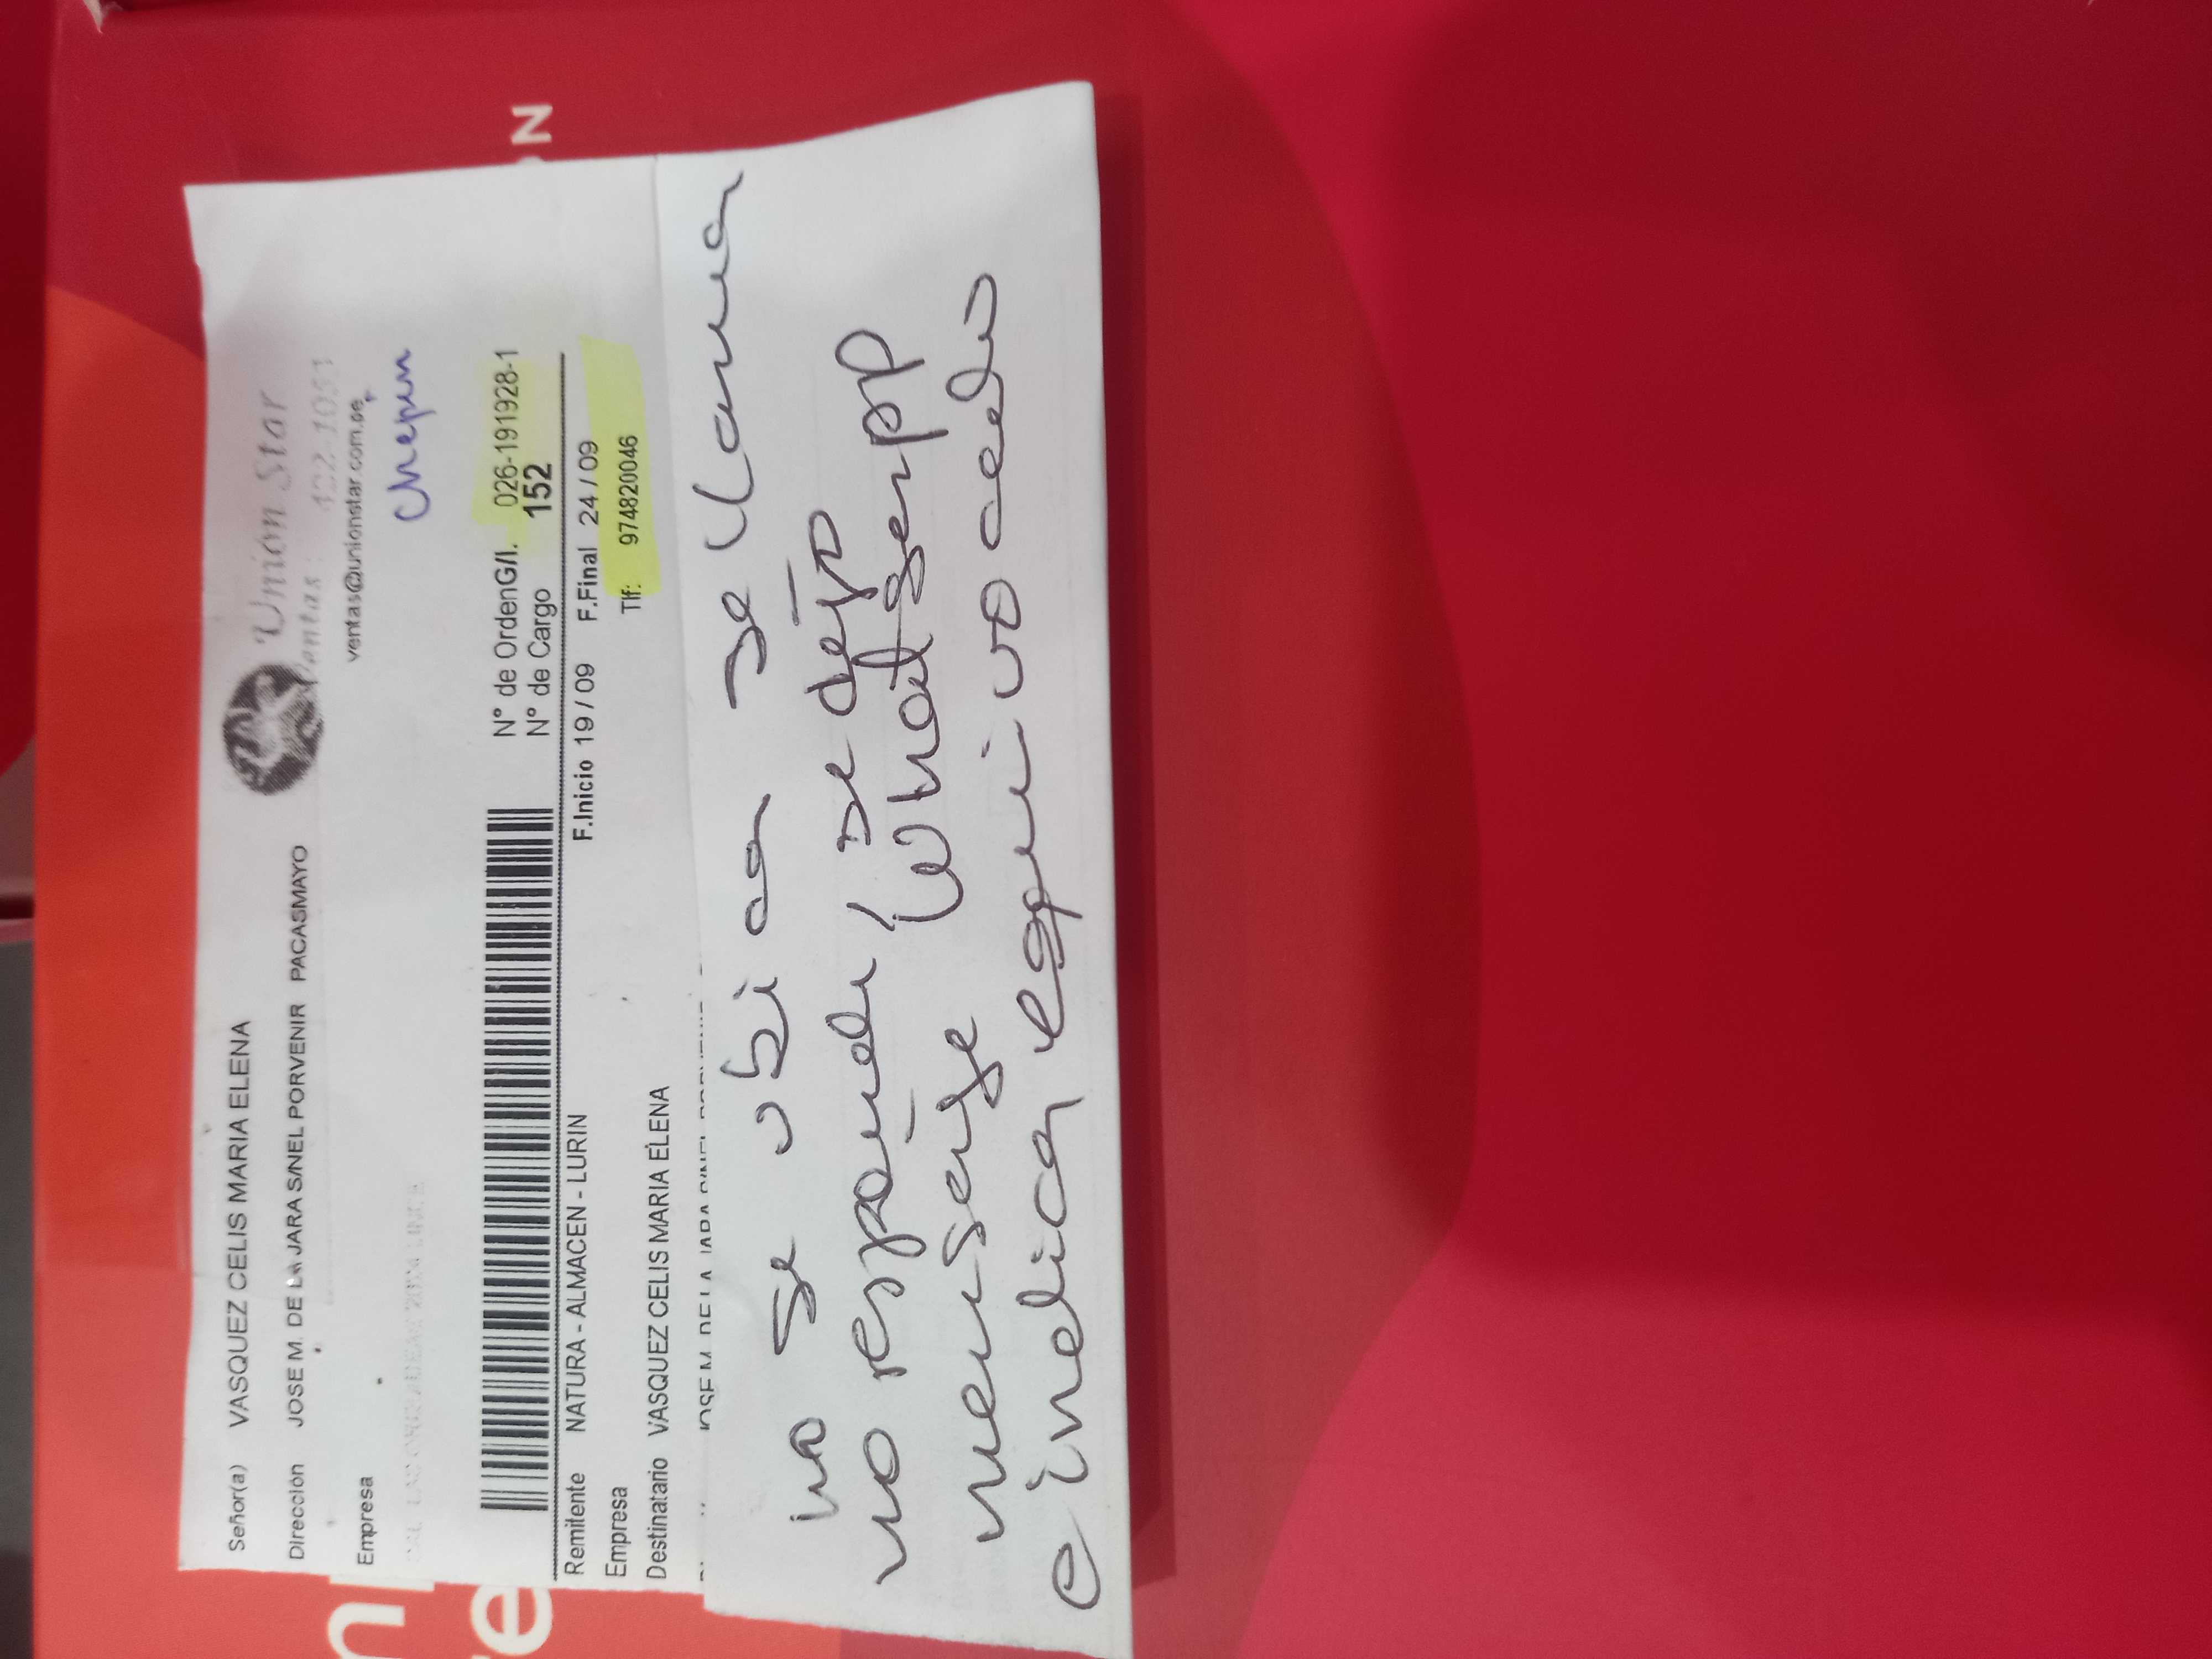 Señor(a) VASQUEZ CELIS MARIA ELENA
Dirección JOSE M. DE LA JARA S/NEL PORVENIR PACASMAYO
Empresa
Union Star
ventas@unionstar.com.pe
Chepen
N° de OrdenG/I. 026-191928-1
N° de Cargo 152
Remitente NATURA - ALMACEN - LURIN
F.Inicio 19 / 09 F.Final 24 / 09
Empresa
Tlf: 974820046
Destinatario VASQUEZ CELIS MARIA ELENA
no se ubica se llama
no responde / se dejo
mensaje
e indica equivocado
N